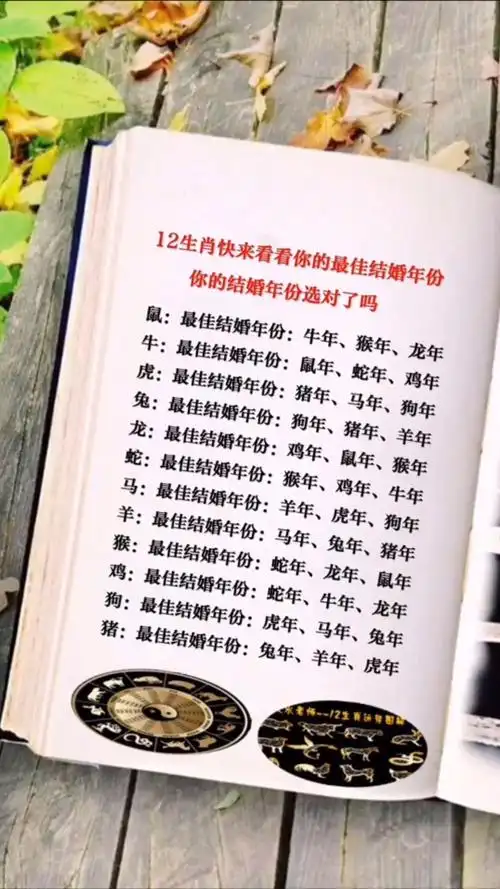 12生肖快来看看你的最佳结婚年份
你的结婚年份选对了吗
鼠：最佳结婚年份：牛年、猴年、龙年
牛：最佳结婚年份：鼠年、蛇年、鸡年
虎：最佳结婚年份：猪年、马年、狗年
兔：最佳结婚年份：狗年、猪年、羊年
龙：最佳结婚年份：鸡年、鼠年、猴年
蛇：最佳结婚年份：猴年、鸡年、牛年
马：最佳结婚年份：羊年、虎年、狗年
羊：最佳结婚年份：马年、兔年、猪年
猴：最佳结婚年份：蛇年、龙年、鼠年
鸡：最佳结婚年份：蛇年、牛年、龙年
狗：最佳结婚年份：虎年、马年、兔年
猪：最佳结婚年份：兔年、羊年、虎年
老师--12生肖